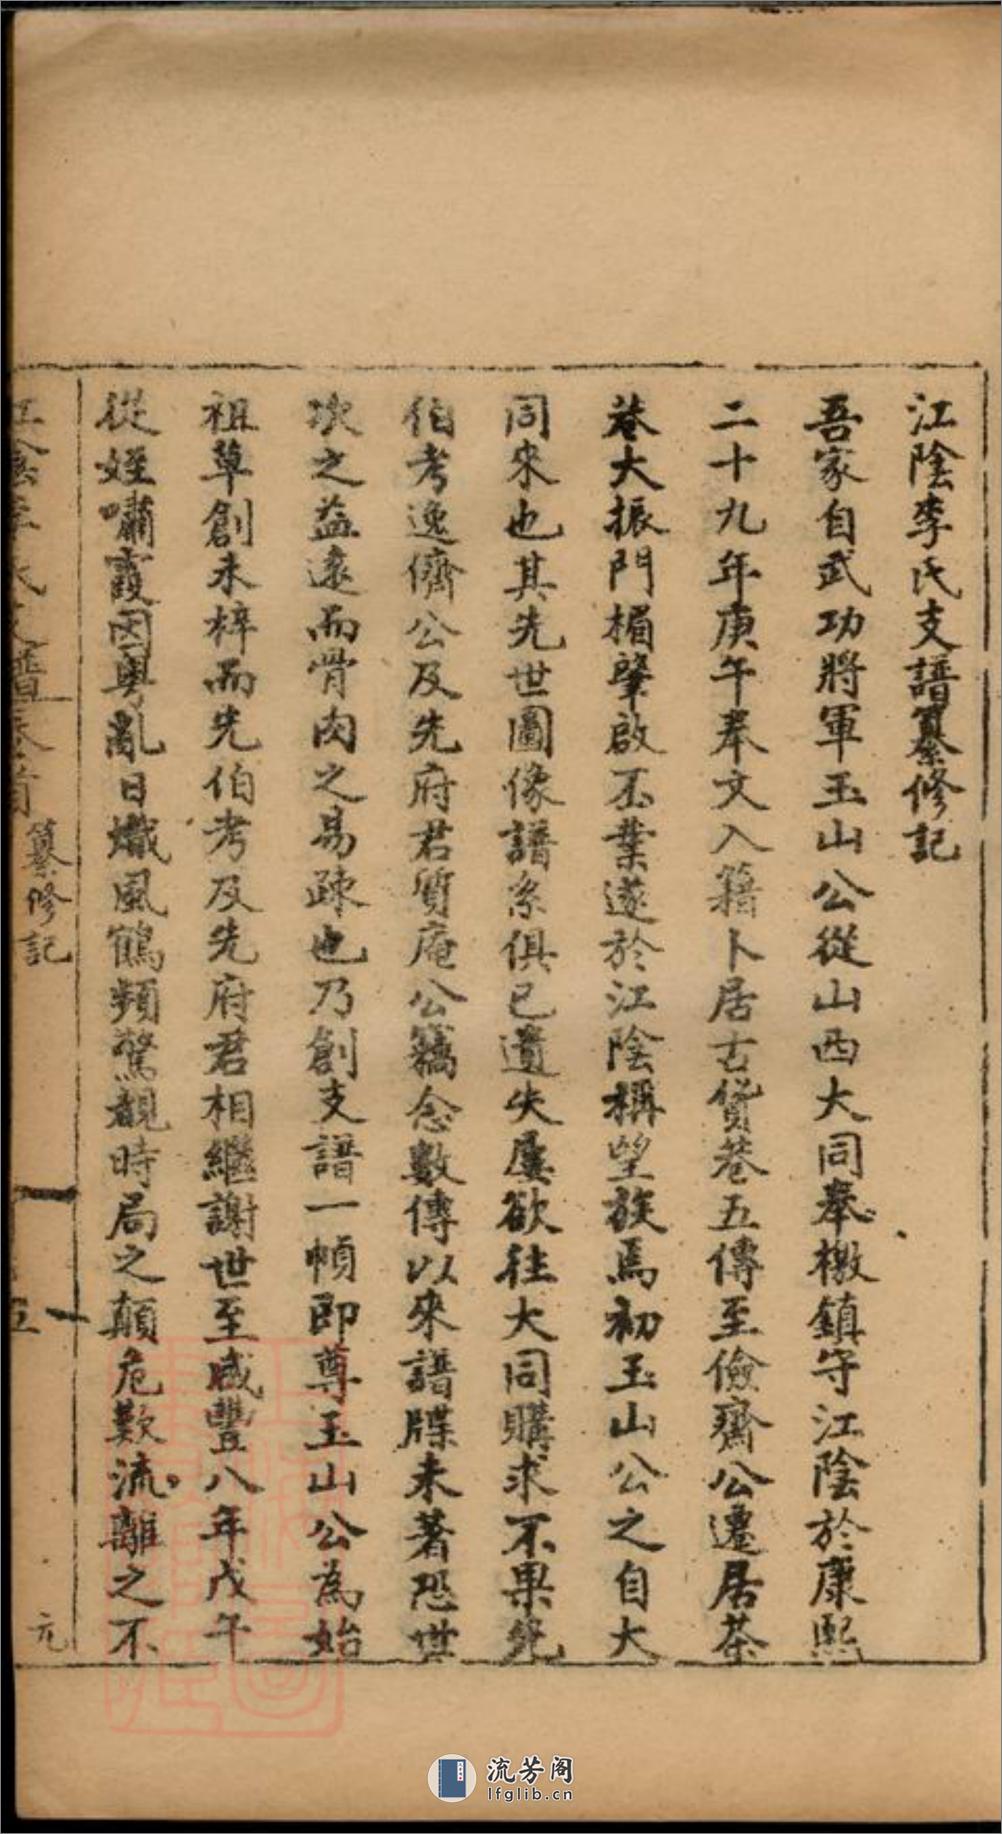 江陰李氏支譜纂修記
吾家自武功將軍玉山公從山西大同奉檄鎮守江陰於康熙
二十九年庚午奉文入籍卜居古貸巷五傳至儉齋公遷居茶
巷大振門楣肇啟丕業遂於江陰稱望族焉初玉山公之自大
同來也其先世圖像譜系俱已遺失屢欲往大同購求不果先
伯考逸儕公及先府君質庵公竊念數傳以來譜牒未著恐世
次之益遠而骨肉之易疎也乃創支譜一幀即尊玉山公為始
祖草創未梓而先伯考及先府君相繼謝世至咸豐八年戊午
從姪嘯霞因粵亂日熾風鶴頻驚覩時局之顛危歎流離之不
江陰李氏支譜 卷首 纂修記
五
元
流芳阁
lfglib.cn